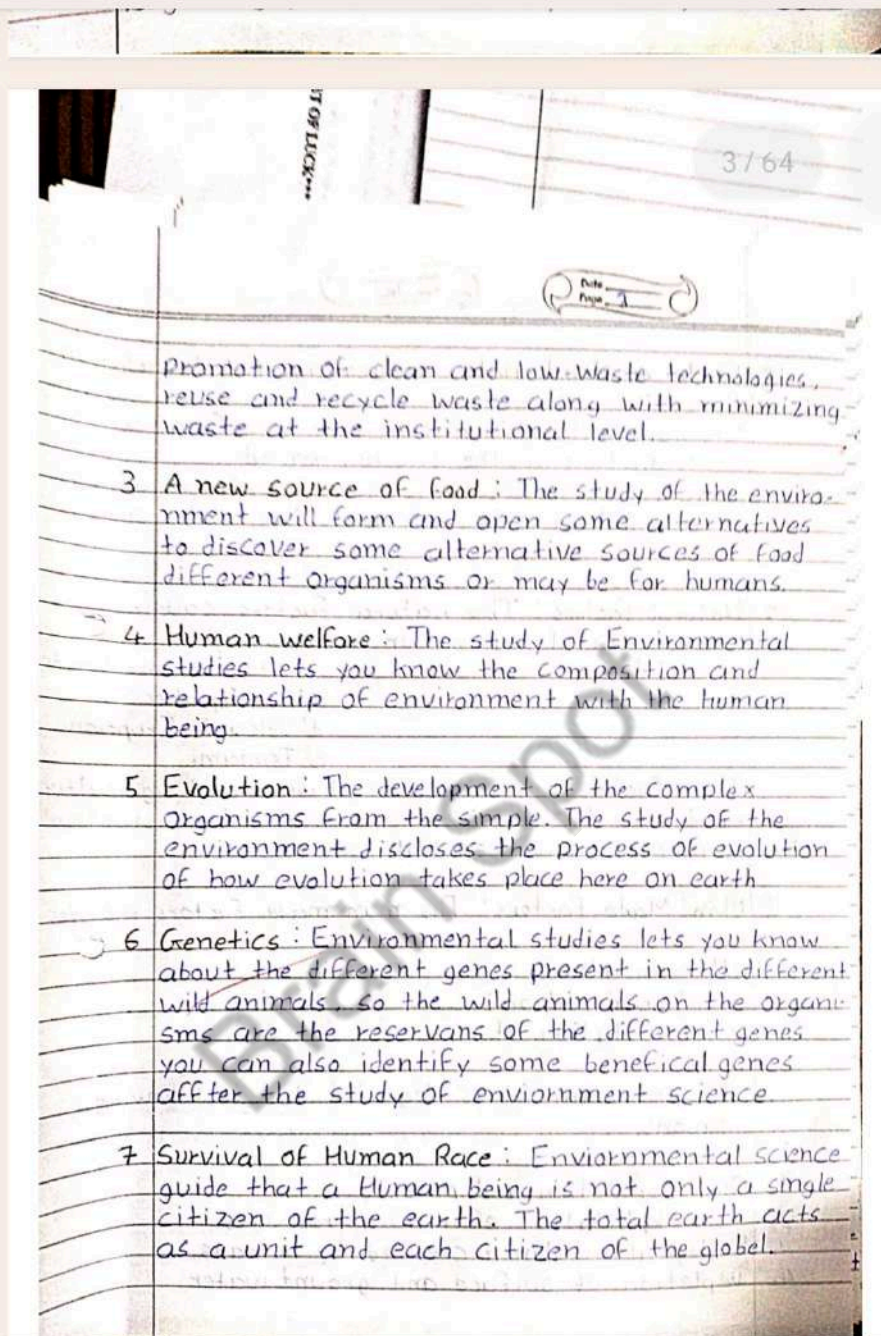 T OF LUCK•••
3 / 64
Date
Page 1
Promotion of clean and low waste technologies,
reuse and recycle waste along with minimizing
waste at the institutional level.
3 A new source of food : The study of the enviro-
nment will form and open some alternatives
to discover some alternative sources of food
different organisms or may be for humans.
4 Human welfare : The study of Environmental
studies lets you know the composition and
relationship of environment with the human
being
5 Evolution : The development of the complex
organisms from the simple. The study of the
environment discloses the process of evolution
of how evolution takes place here on earth
6 Genetics : Environmental studies lets you know
about the different genes present in the different
wild animals so the wild animals on the organi-
sms are the reservans of the different genes
you can also identify some benefical genes
affter the study of enviornment science.
7 Survival of Human Race : Enviornmental science
guide that a Human being is not only a single
citizen of the earth. The total earth acts
as a unit and each citizen of the globel.
Brain Spot